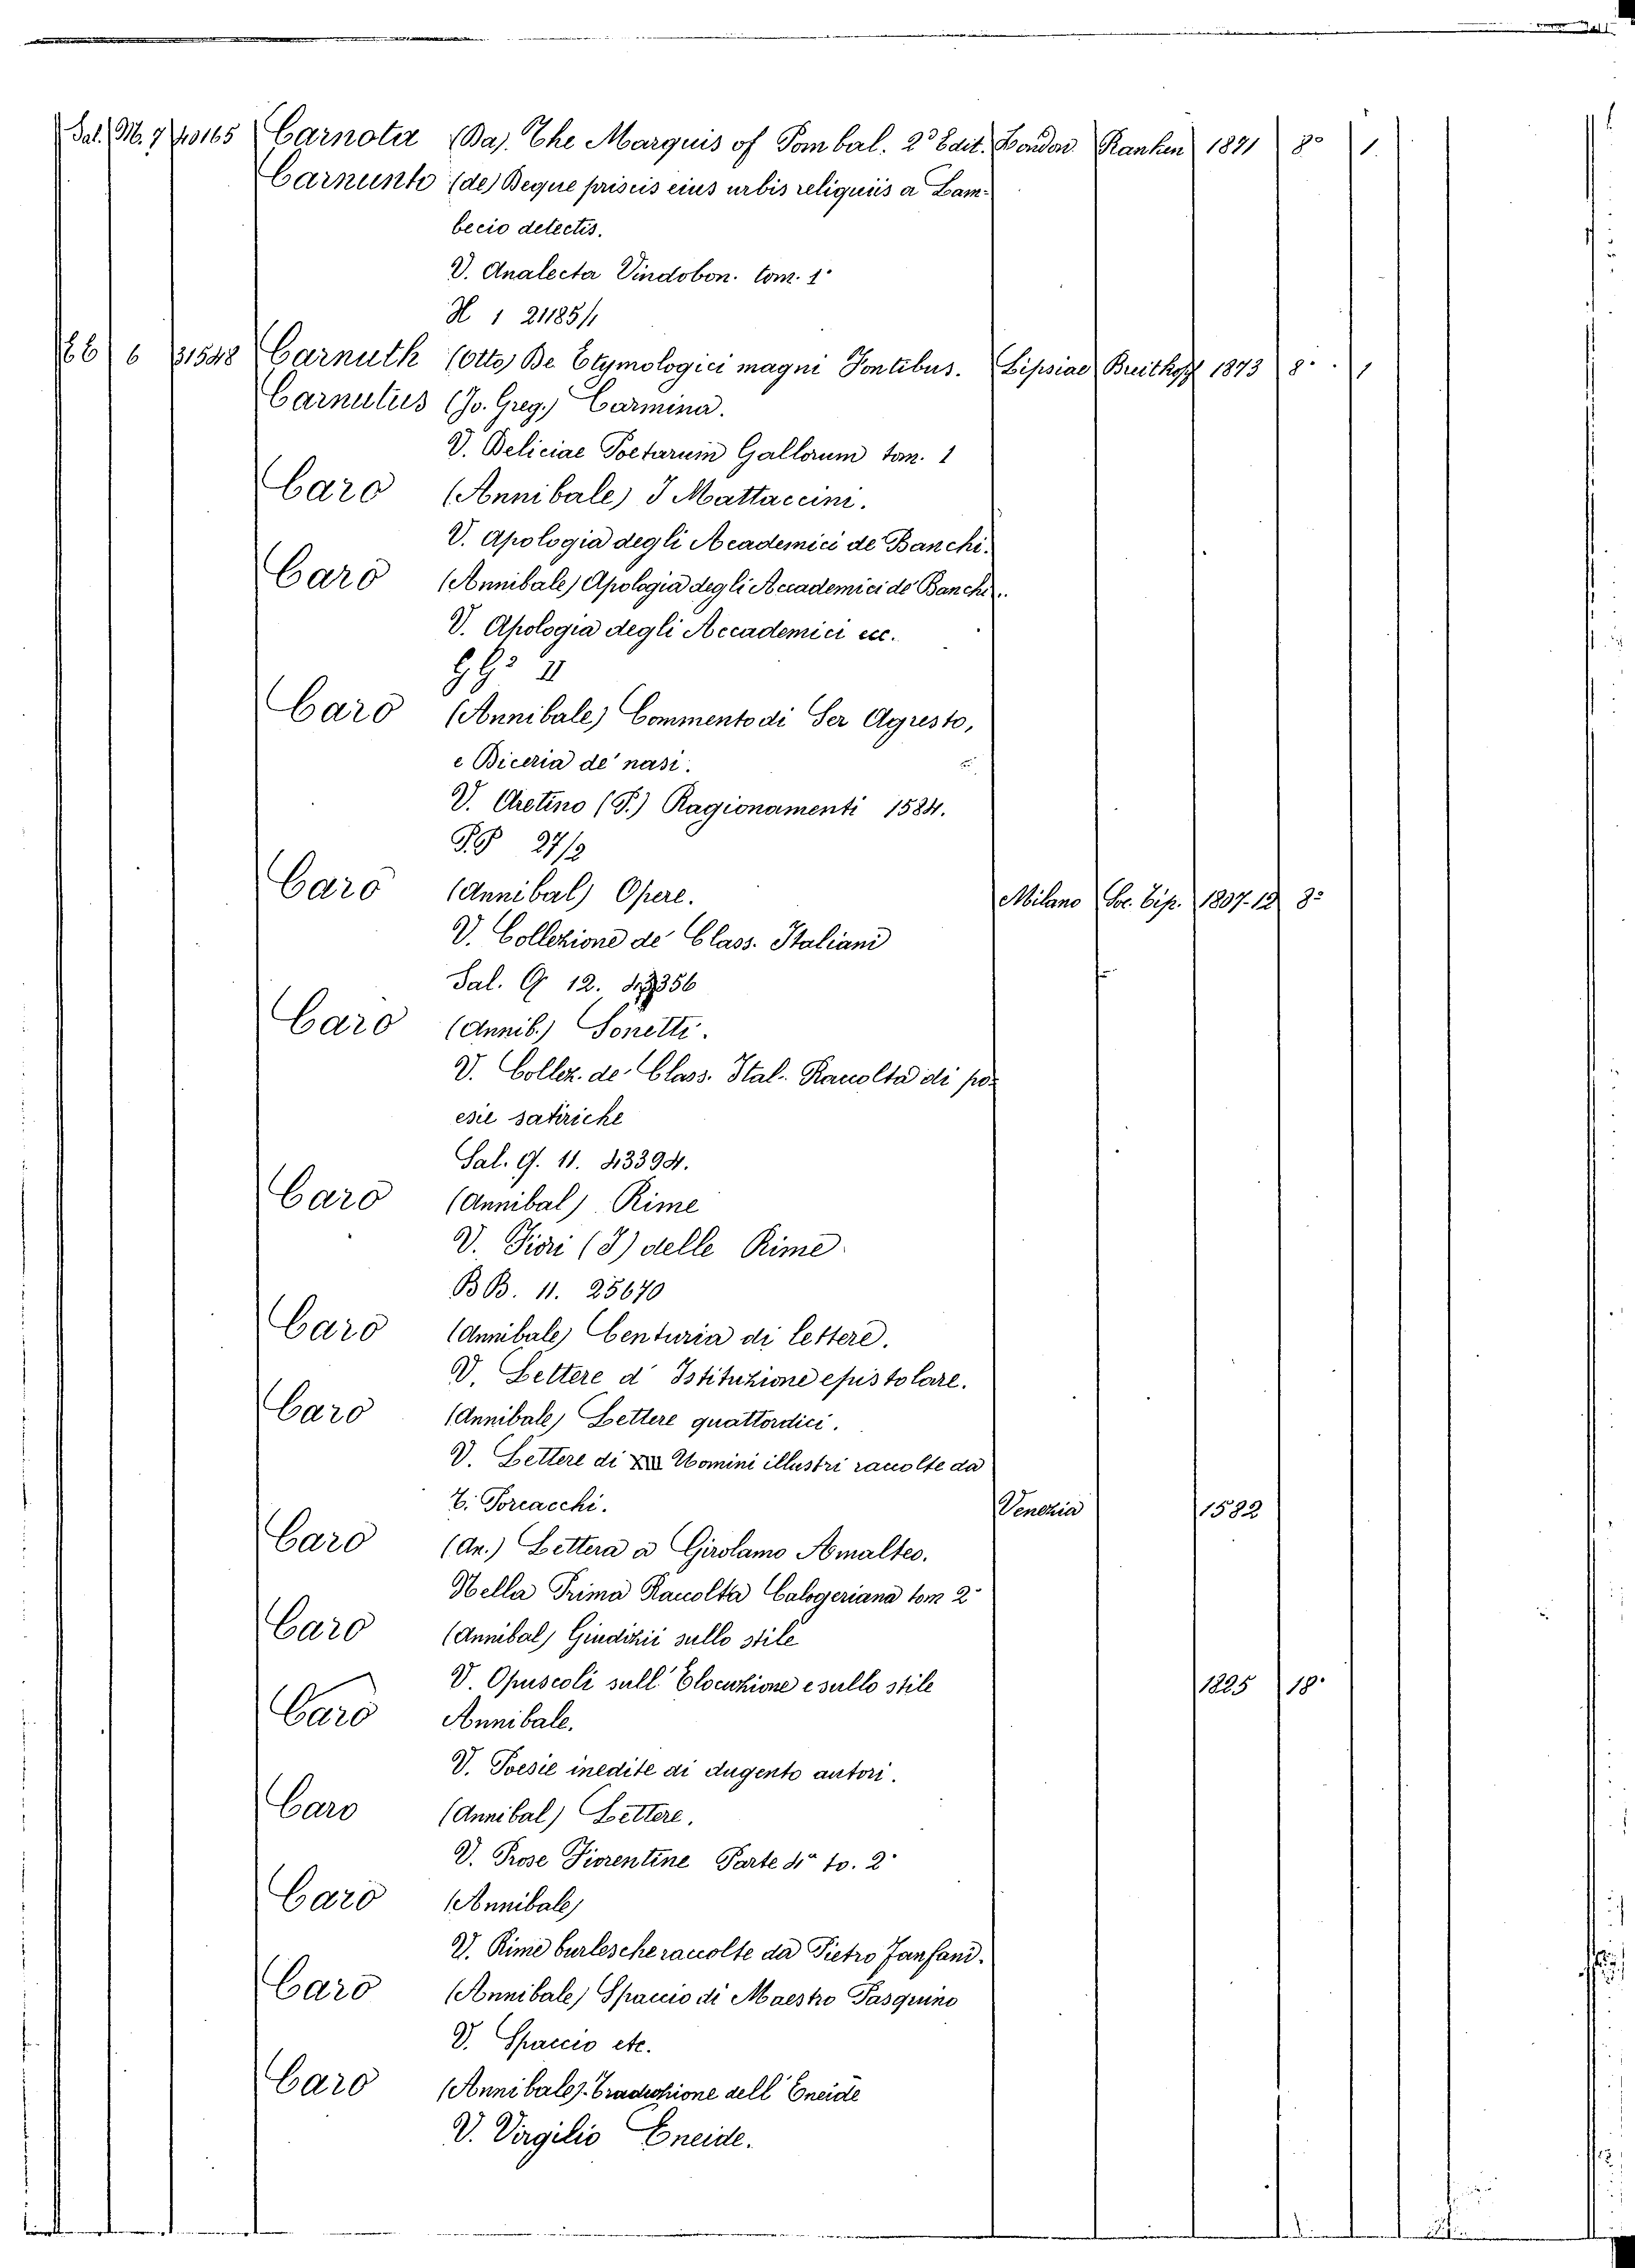 Sal. M. 7 40165 Carnota (Da). The Marquis of Pombal. 2ª Edit. London Ranken 1871 8º 1.
Carnunto (de) Deque priscis eius urbis reliquiis a Lam-
becio detectis.
V. Analecta Vindobon. tom. 1º
H 1 21185/1
6 31548 Carnuth (Otto) De Etymologici magni Fontibus. Lipsiae Breitkopf 1873 8º 1
Carnutus (Jo. Greg.) Carmina.
V. Deliciae Poetarum Gallorum tom. 1
Caro (Annibale) I Mattaccini.
V. Apologia degli Academici de Banchi.
Caro (Annibale) Apologia degli Accademici de Banchi.
V. Apologia degli Accademici ecc.
GGº II
Caro (Annibale) Commento di Ser Agresto,
e Diceria de' nasi.
V. Aretino (P.) Ragionamenti 1584.
27/2
Caro (Annibal) Opere. Milano Soc. Tip. 1807-12 8º
V. Collezione de' Class. Italiani
Sal. G 12.
Caro (Annib.) Sonetti.
V. Collez. de' Class. Ital. Raccolta di po-
esie satiriche
Sal. G. 11. 43394.
Caro (Annibal) Rime
V. Fiori (I) delle Rime.
BB. 11. 25670
Caro (Annibale) Centuria di lettere.
V. Lettere d' Istituzione epistolare.
Caro (Annibale) Lettere quattordici.
V. Lettere di XIII Uomini illustri raccolte da
T. Porcacchi. Venezia 1582
Caro (An.) Lettera a Girolamo Amalteo.
Nella Prima Raccolta Calogeriana tom 2º
Caro (Annibal) Giudizii sullo stile
V. Opuscoli sull' Elocuzione e sullo stile 1825 18º
Caro Annibale.
V. Poesie inedite di dugento autori.
Caro (Annibal) Lettere.
V. Prose Fiorentine Parte 4ª to. 2º
Caro (Annibale)
V. Rime burlesche raccolte da Pietro Fanfani.
Caro (Annibale) Spaccio di Maestro Pasquino
V. Spaccio etc.
Caro (Annibale). Traduzione dell' Eneide
V. Virgilio Eneide.